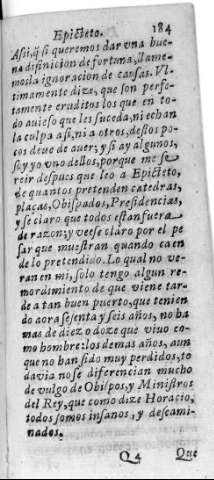 Epicteto. 184
Assi, q̃ si queremos dar vna bue-
na difinicion de fortuna, llame-
mosla ignoracion de causas. Vl-
timamente dize, que son perfe-
tamente eruditos los que en to-
do auieso que les suceda, ni echan
la culpa a si, ni a otros, destos po-
cos deue de auer; y si ay algunos,
soy yo vno dellos, porque me se
reir despues que leo a Epicteto,
de quantos pretenden catedras,
plaças, Obispados, Presidencias,
y se claro que todos estan fuera
de razon; y veese claro por el pe
sar que muestran quando caen
de lo pretendido. Lo qual no ve-
ran en mi, solo tengo algun re-
mordimiento de que viene tar-
de a tan buen puerto, que tenien
do aora sesenta y seis años, no ha
mas de diez o doze que viuo co-
mo hombre: los demas años, aun
que no han sido muy perdidos, to
davia no se diferencian mucho
de vulgo de Obispos, y Ministros
del Rey, que como dize Horacio,
todos somos insanos, y descami-
nados.
Q 4 Que